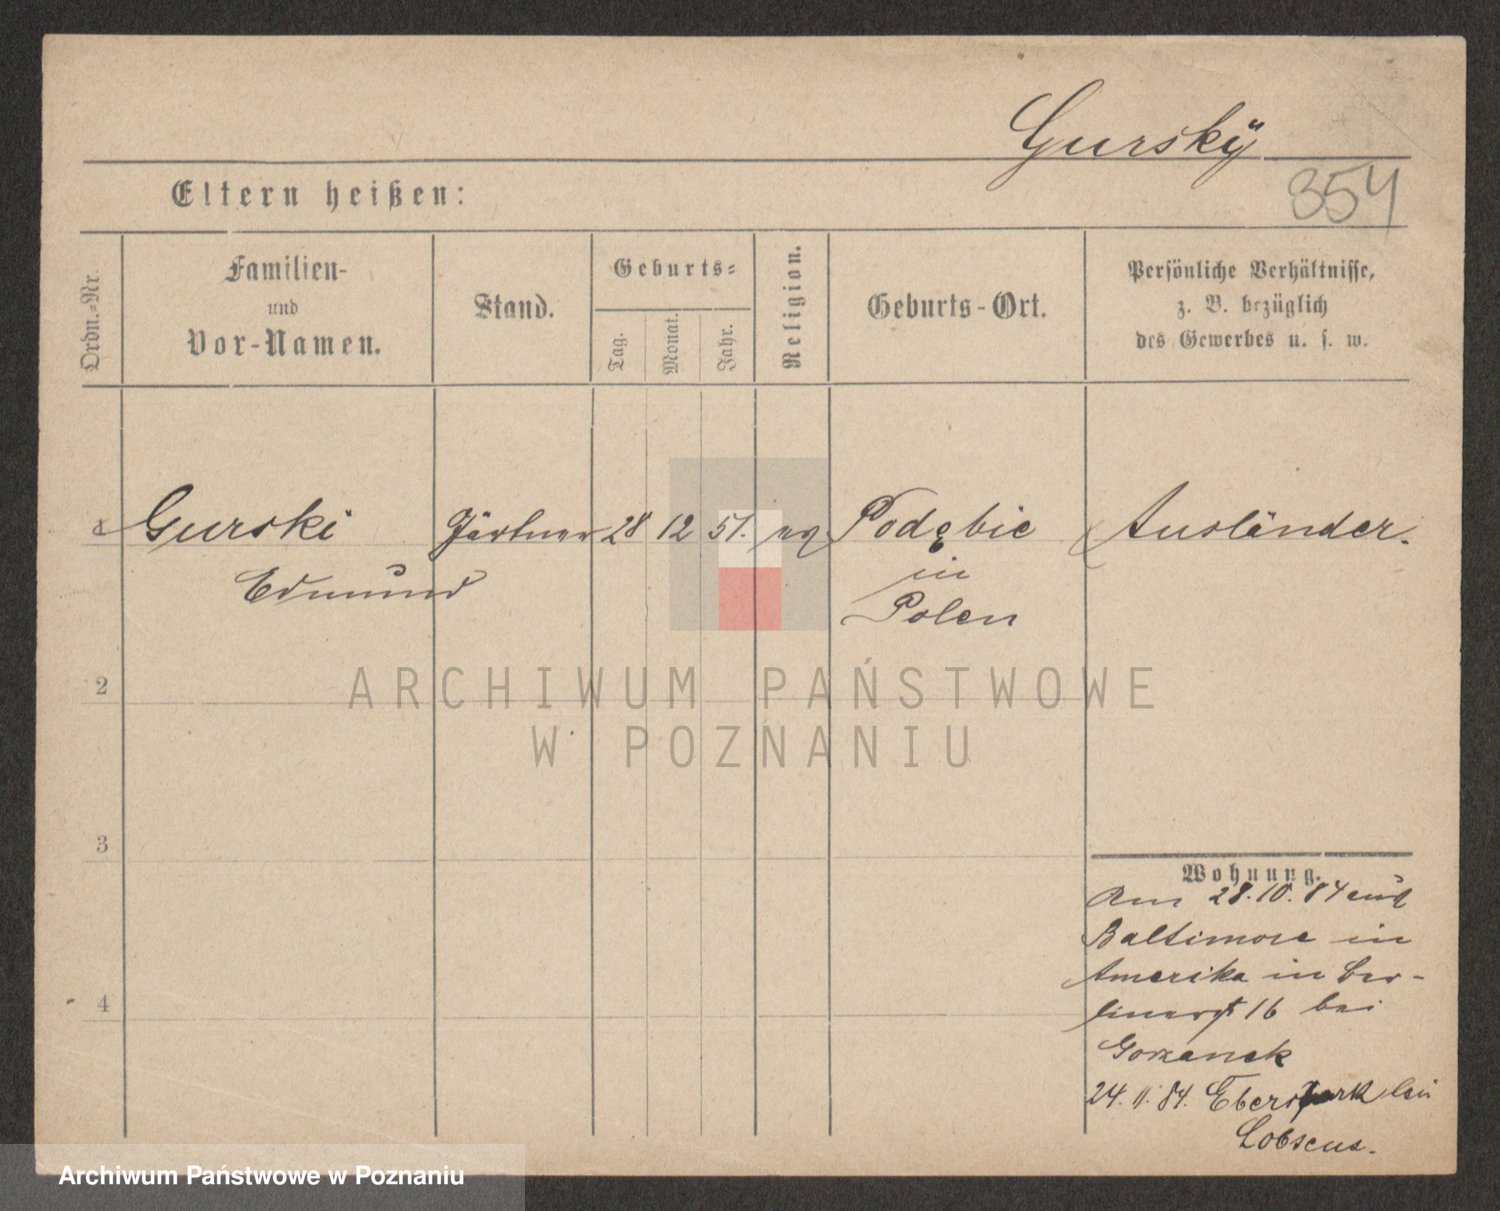 Gurskÿ
354
Eltern heißen:
Ordn.-Nr.
Familien-
und
Vor-Namen.
Stand.
Geburts-
Tag.
Monat.
Jahr.
Religion.
Geburts-Ort.
Persönliche Verhältnisse,
z. B. bezüglich
des Gewerbes u. s. w.
Gurski Gärtner 28 12 51. Podębie Ausländer.
Edmund in
Polen
2
ARCHIWUM PAŃSTWOWE
W POZNANIU
3
Wohnung.
Am 28.10.84 aus
Baltimore in
Amerika in Ber-
linerst 16 bei
Gorzanek
4
24. 11. 84. Eberspark bei
Lobsens.
Archiwum Państwowe w Poznaniu